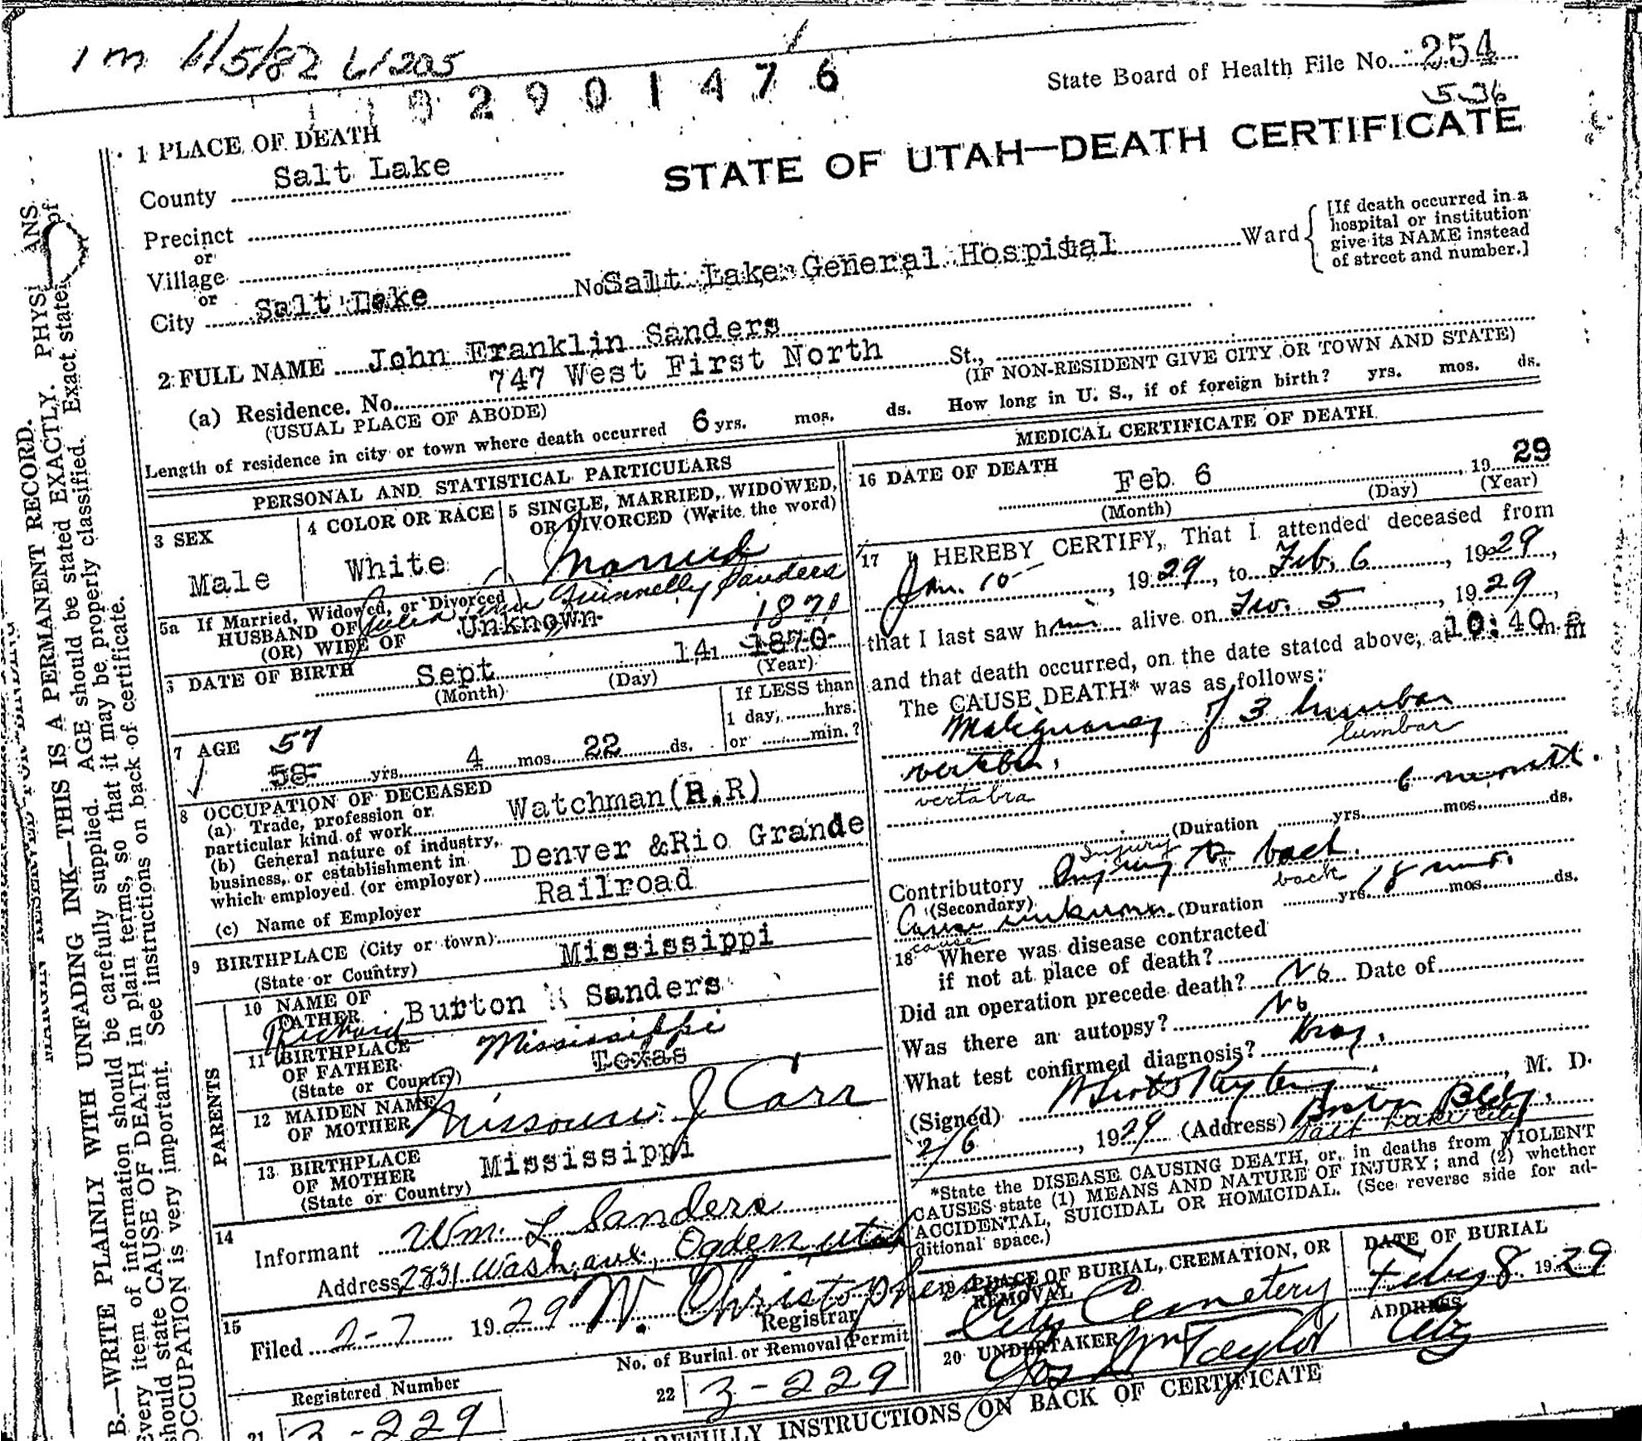 1 m 6/5/82 61205
2 9 0 1 4 7 6
State Board of Health File No. 254
536
1 PLACE OF DEATH
STATE OF UTAH—DEATH CERTIFICATE
County Salt Lake
Precinct
or
Village
or
City Salt Lake No. Salt Lake General Hospital Ward
[If death occurred in a
hospital or institution
give its NAME instead
of street and number.]
2 FULL NAME John Franklin Sanders
(a) Residence. No. 747 West First North St.,
(USUAL PLACE OF ABODE) (IF NON-RESIDENT GIVE CITY OR TOWN AND STATE)
Length of residence in city or town where death occurred 6 yrs. mos. ds. How long in U. S., if of foreign birth? yrs. mos. ds.
PERSONAL AND STATISTICAL PARTICULARS
3 SEX
Male
4 COLOR OR RACE
White
5 SINGLE, MARRIED, WIDOWED,
OR DIVORCED (Write the word)
Married
5a If Married, Widowed, or Divorced
HUSBAND OF Sanders
(OR) WIFE OF Unknown
1871
DATE OF BIRTH Sept 14 1870
(Month) (Day) (Year)
7 AGE 57
58 yrs. 4 mos. 22 ds.
If LESS than
1 day, hrs.
or min.?
8 OCCUPATION OF DECEASED
(a) Trade, profession or
particular kind of work Watchman (R.R)
(b) General nature of industry,
business, or establishment in
which employed (or employer) Denver & Rio Grande
Railroad
(c) Name of Employer
9 BIRTHPLACE (City or town)
(State or Country) Mississippi
PARENTS
10 NAME OF
FATHER Richard Burton Sanders
11 BIRTHPLACE
OF FATHER Mississippi
(State or Country) Texas
12 MAIDEN NAME
OF MOTHER Missouri J Carr
13 BIRTHPLACE
OF MOTHER Mississippi
(State or Country)
14
Informant Wm. L Sanders
Address 2831 Wash. ave, Ogden, utah
15
Filed 2-7 1929 W. Christophersen
Registrar
No. of Burial or Removal Permit
Registered Number
22 3-229
21 3-229
MEDICAL CERTIFICATE OF DEATH
16 DATE OF DEATH
Feb 6 1929
(Month) (Day) (Year)
17 I HEREBY CERTIFY, That I attended deceased from
Jan. 10 1929, to Feb. 6, 1929,
that I last saw him alive on Feb. 5, 1929,
and that death occurred, on the date stated above, at 10:40 a m
The CAUSE DEATH* was as follows:
Malignancy of 3 lumbar
lumbar
vertebra.
vertabra
6 month.
(Duration yrs. mos. ds.
Injury
Contributory Injury to back.
(Secondary) back
Cause unknown. (Duration yrs. 18 mos. ds.
cause
18 Where was disease contracted
if not at place of death?
Did an operation precede death? No Date of
Was there an autopsy? No
What test confirmed diagnosis? Xray.
(Signed) M. D.
2/6, 1929 (Address) Boston Bldg.
Salt Lake City
*State the DISEASE CAUSING DEATH, or, in deaths from VIOLENT
CAUSES state (1) MEANS AND NATURE OF INJURY; and (2) whether
ACCIDENTAL, SUICIDAL OR HOMICIDAL. (See reverse side for ad-
ditional space.)
19 PLACE OF BURIAL, CREMATION, OR
REMOVAL
City Cemetery
DATE OF BURIAL
Feby 8 1929
20 UNDERTAKER
Jos Wm Taylor
ADDRESS
City
CAREFULLY INSTRUCTIONS ON BACK OF CERTIFICATE
MARGIN RESERVED FOR BINDING
B.—WRITE PLAINLY WITH UNFADING INK—THIS IS A PERMANENT RECORD.
Every item of information should be carefully supplied. AGE should be stated EXACTLY. PHYSICIANS
should state CAUSE OF DEATH in plain terms, so that it may be properly classified. Exact state of
OCCUPATION is very important. See instructions on back of certificate.